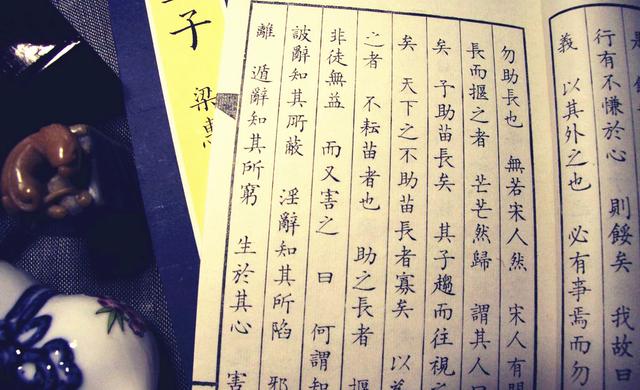 行有不慊於心 則餒矣 我故曰
義 以其外之也 必有事焉而勿
勿助長也 無若宋人然 宋人有閔
長而揠之者 芒芒然歸 謂其人曰
矣 予助苗長矣 其子趨而往視之
矣 天下之不助苗長者寡矣 以為
之者 不耘苗者也 助之長者 揠
非徒無益 而又害之 曰 何謂知
詖辭知其所蔽 淫辭知其所陷 邪
離 遁辭知其所窮 生於其心 害
子 梁惠